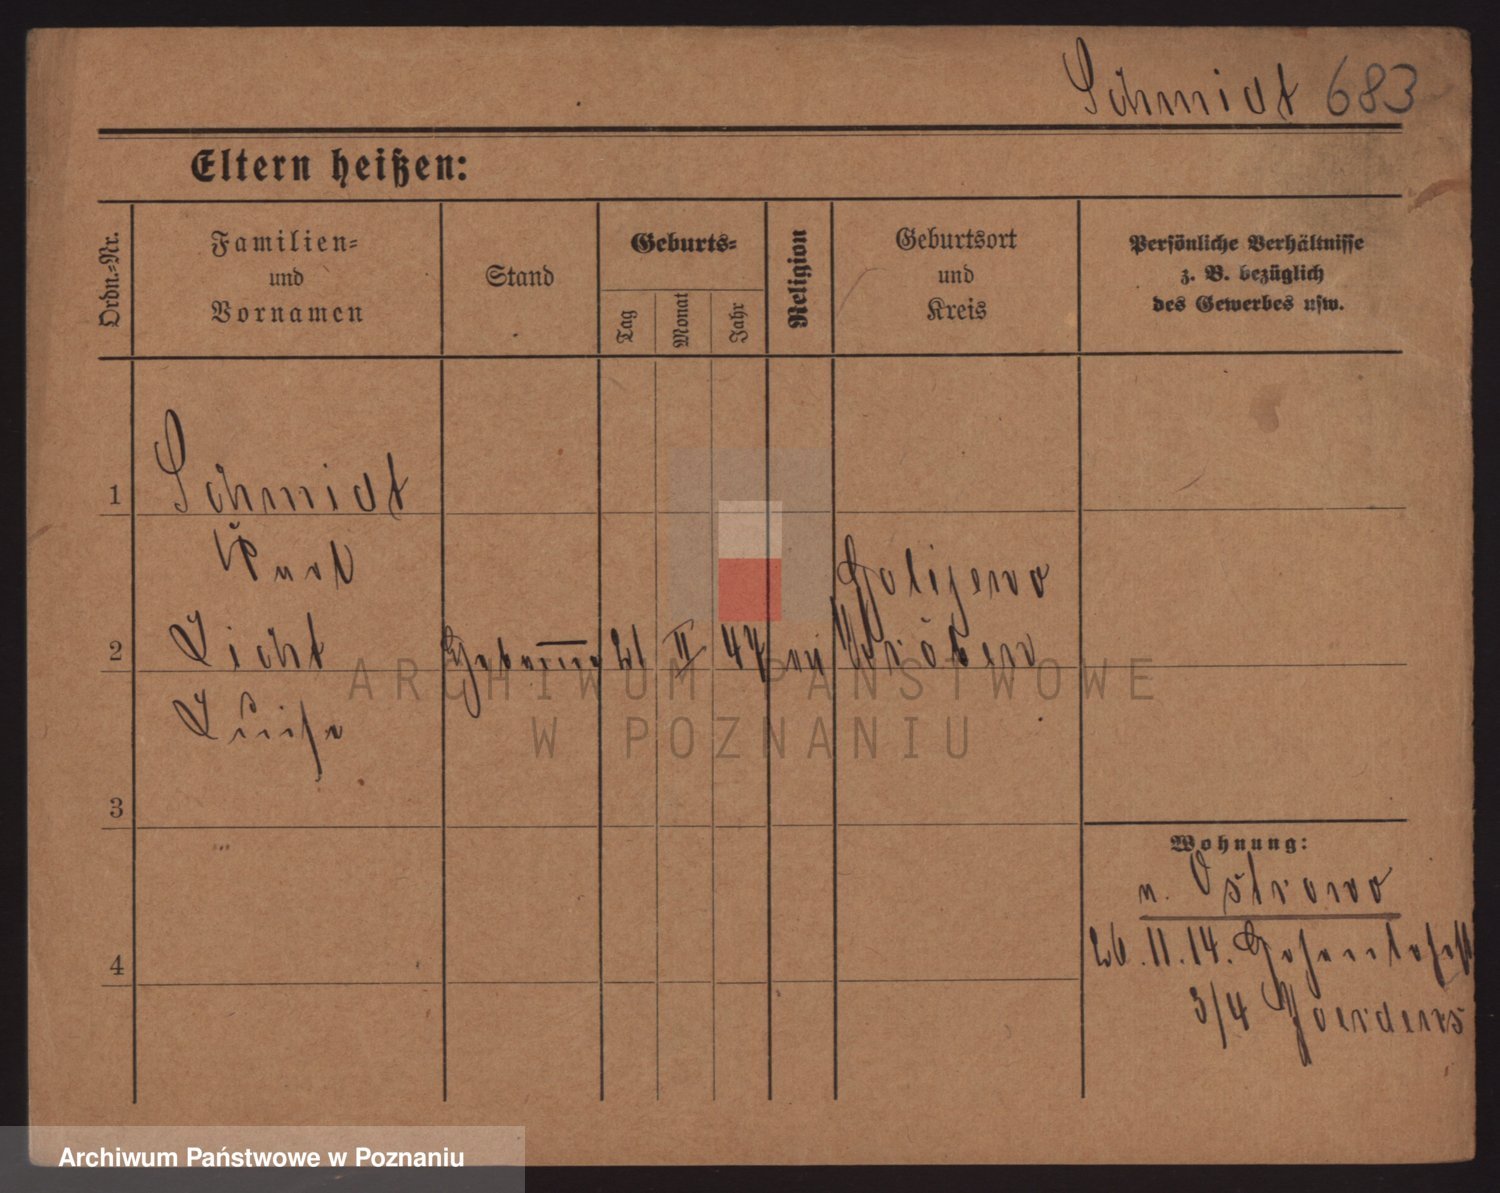 Schmidt 683
Eltern heißen:
Ordn.=Nr.
Familien=
und
Vornamen
Stand
Geburts=
Tag
Monat
Jahr
Religion
Geburtsort
und
Kreis
Persönliche Verhältnisse
z. B. bezüglich
des Gewerbes usw.
1
Schmidt
2
Licht
21 II 47 ev Kröben
Luise
3
4
Wohnung:
n. Ostrowo
26.11.14.
3/4 Joerdens
ARCHIWUM PAŃSTWOWE
W POZNANIU
Archiwum Państwowe w Poznaniu